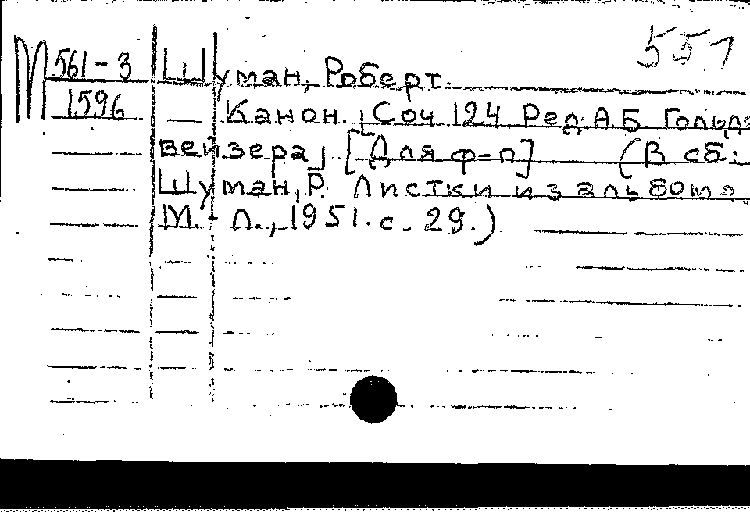 551
М 561-3 Шуман, Роберт.
1596 Канон. [Соч 124 Ред. А Б Гольд
вейзера] [Для ф-п] (В сб.:
Шуман, Р. Листки из альбома.
М. - Л., 1951. с. 29.)